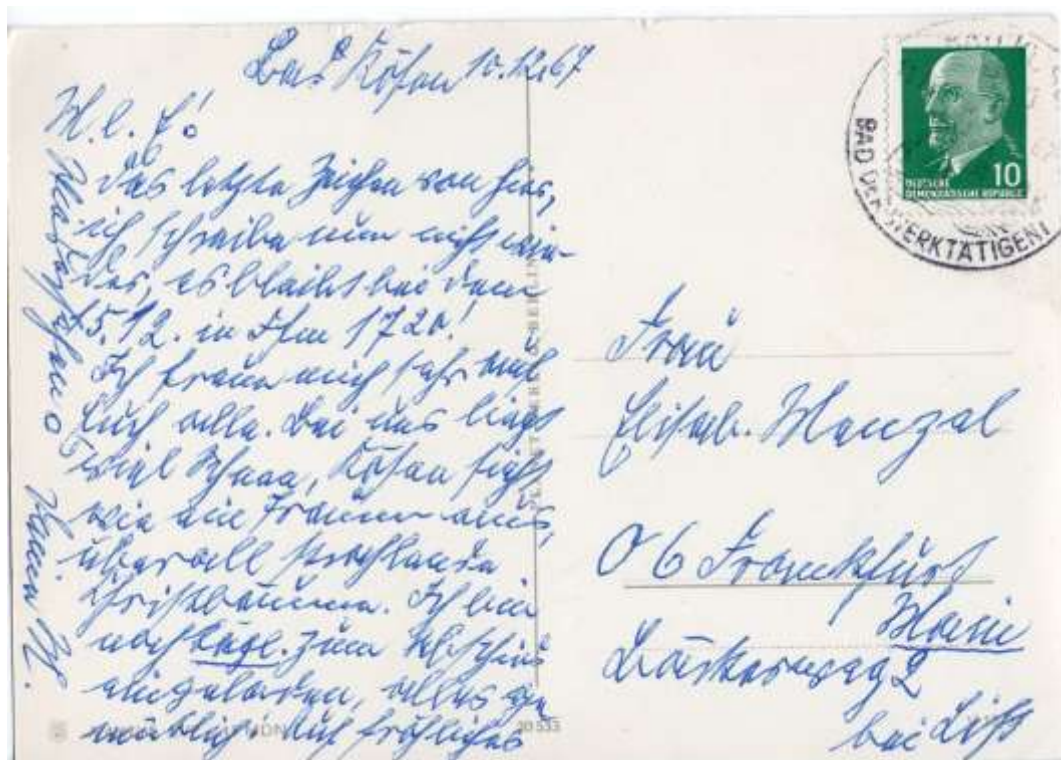 Bad Kösen 10.12.67
M. l. E!
das letzte Zeichen von hier,
ich schreibe nun nicht wie-
der, es bleibt bei dem
15.12. in Ffm 1720!
Ich freue mich sehr auf
Euch alle. Bei uns liegt
viel Schnee, Kösen sieht
wie ein Traum aus,
überall strahlende
Christbäume. Ich bin
noch tägl. zum Abschied
eingeladen, alles ge
mütlich. Auf fröhliches
Wiedersehen
BAD DER WERKTÄTIGEN!
DEUTSCHE
DEMOKRATISCHE REPUBLIK
10
Frau
Elisab. Menzel
06 Frankfurt
Main
Bäckerweg 2
bei Liss